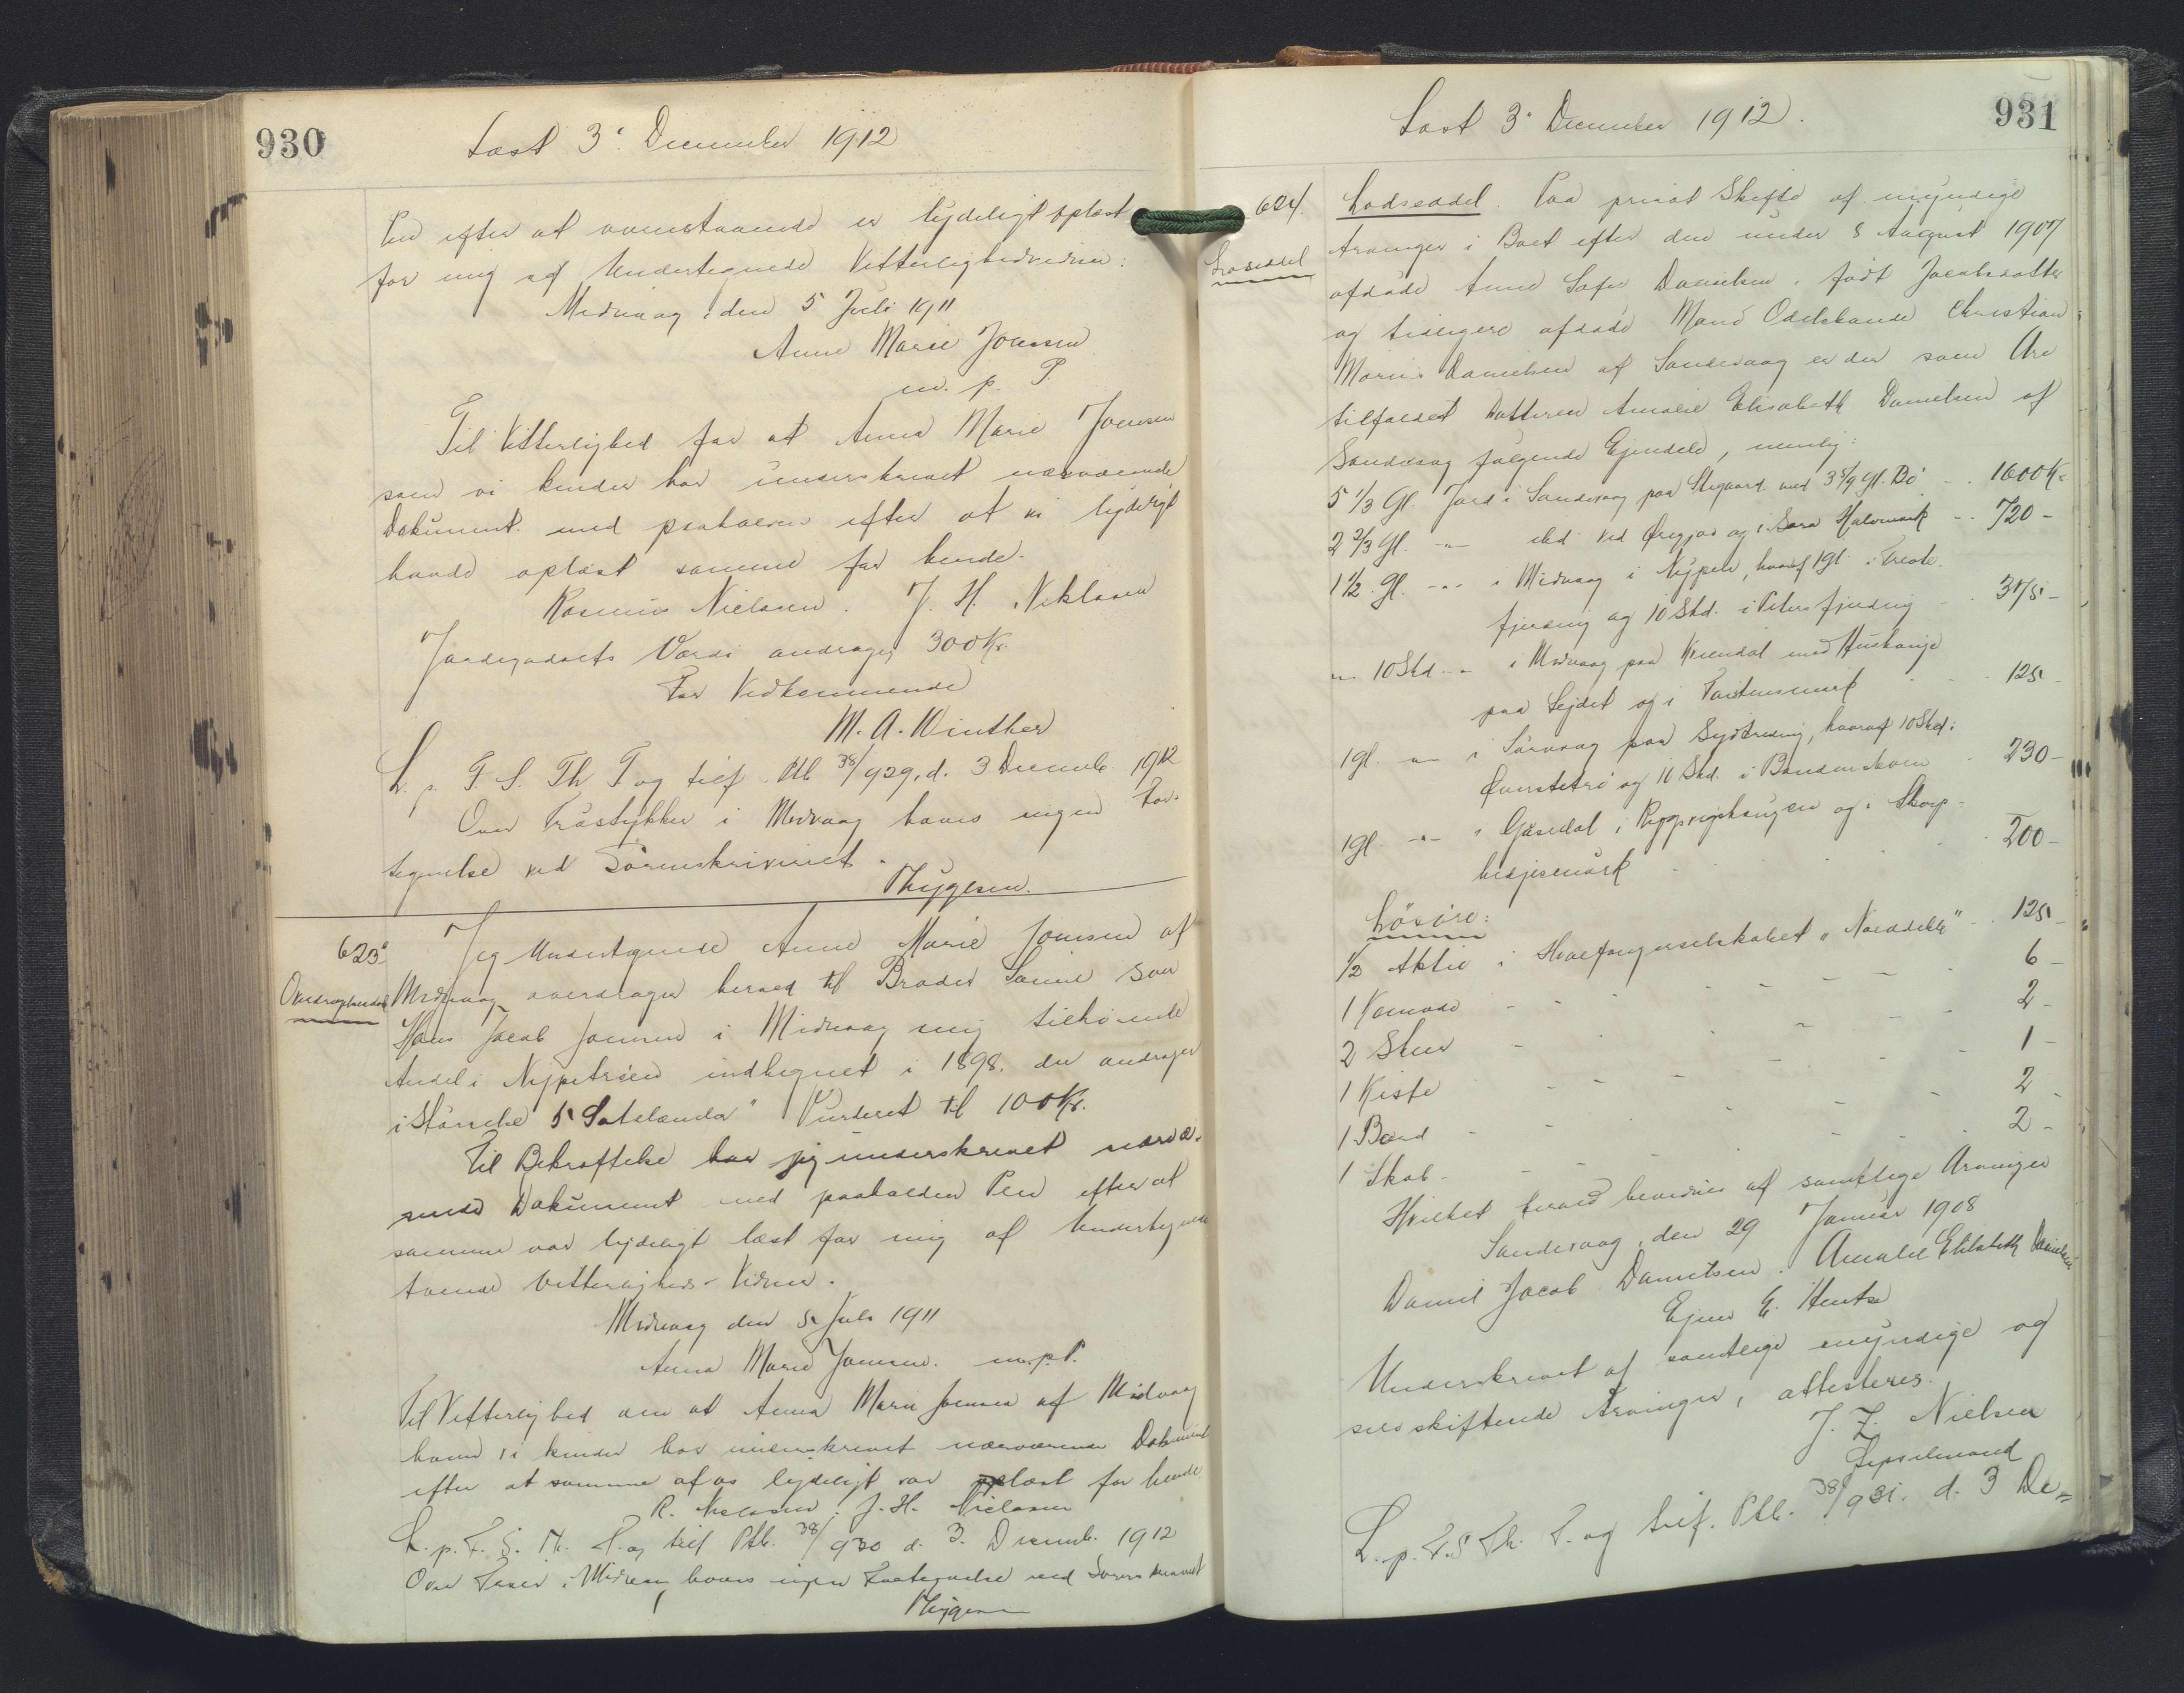 930
Læst 3' December 1912
Pen efter at ovenstaaende er lydeligt oplæst
for mig af Undertegnede Vitterlighedsvidner:
Midvaag, den 5 Juli 1911
Anne Marie Joensen
m. p. P.
Til Vitterlighed for at Anna Marie Joensen
som vi kender har underskrevet nærværende
Dokument med paaholden efter at vi lydeligt
havde oplæst samme for hende.
Rasmus Nielsen. J. H. Niklasen
Jordegodsets Værdi andrager 300 Kr.
For Vedkommende
M. A. Winther
L. p. F. S. Th. F og tilf. Ptb 38/929, d. 3 Decemb. 1912
Over Træstykker i Midvaag haves ingen For-
tegnelse ved Sorenskriveriet.
Thygesen.
623
Jeg Undertegnede Anne Marie Joensen af
Midvaag overdrager herved til Broder Sønne Søn
Hans Jacob Joensen i Midvaag mig tilhørende
Andel i indhegnet i 1898. der andrager
i Størrelse 5 Vurderet til 100 Kr.
Til Bekræftelse har jeg underskrevet nærvæ-
rende Dokument med paaholden Pen efter at
samme var lydeligt læst for mig af Undertegnede
tvende Vitterligheds-Vidner.
Midvaag den 5 Juli 1911
Anna Marie Joensen. m.p.P.
Til Vitterlighed om at Anna Marie Joensen af Midvaag
hvem vi kender har underskrevet nærværende Dokument
efter at samme af os lydeligt var oplæst for hende
R. Nielsen. J. H. Niclasen
L. p. F. S. Th. F. og tilf Ptb. 38/930 d. 3. Decemb. 1912
Over i Midvaag haves ingen Fortegnelse ved Sorenskriveriet
Thygesen
931
Læst 3' December 1912.
624.
Lodseddel
Lodseddel. Paa privat Skifte af myndige
Arvinger i Boet efter den under 8 August 1907
afdøde Anne Sofie Danielsen, født Jacobsdatter
og tidligere afdøde Mand Odelsbonde Christian
Marius Danielsen af Sandevaag er der som Arv
tilfaldet Datteren Amalie Elisabeth Danielsen af
Sandevaag følgende Ejendele, nemlig:
5 1/3 Gl. Jord i Sandevaag paa Stegaard med 3 5/9 gl. Bø - . 1600 Kr
2 2/3 Gl. -"- sted ved og i Søra Halvmark - . 720 -
1 1/2 Gl. -"- i Midvaag i Nypen, hvoraf 1gl i
fjerding og 10 Skd. i Peters fjerding - . 375 -
" 10 Skd. " i Midvaag paa med
paa Lejdet og i . . . 125 -
1gl. -"- i Sørvaag paa hvoraf 10 Skd. i
og 10 Skd. i . 230 -
1gl. -"- i Gaasedal i og i Skorp-
. . . 200 -
Løsøre:
1/2 Aktie i Hvalfangerselskabet " - . 125 -
1 Komode - - - - - - 6 -
2 Stole - - - - - 2 -
1 Kiste - - - - - 1 -
1 Bord - - - - - 2 -
1 Skab - - - - - 2 -
Hvilket herved bevidnes af samtlige Arvinger
Sandevaag, den 29 Januar 1908
Daniel Jacob Danielsen. Amalie Elisabeth Danielsen
Ejner E. Hentze
Underskrevet af samtlige myndige og
selvskiftende Arvinger, attesteres.
J. Z. Nielsen
L. p. F. S Th. F. og tilf. Ptb. 38/931. d. 3 De-